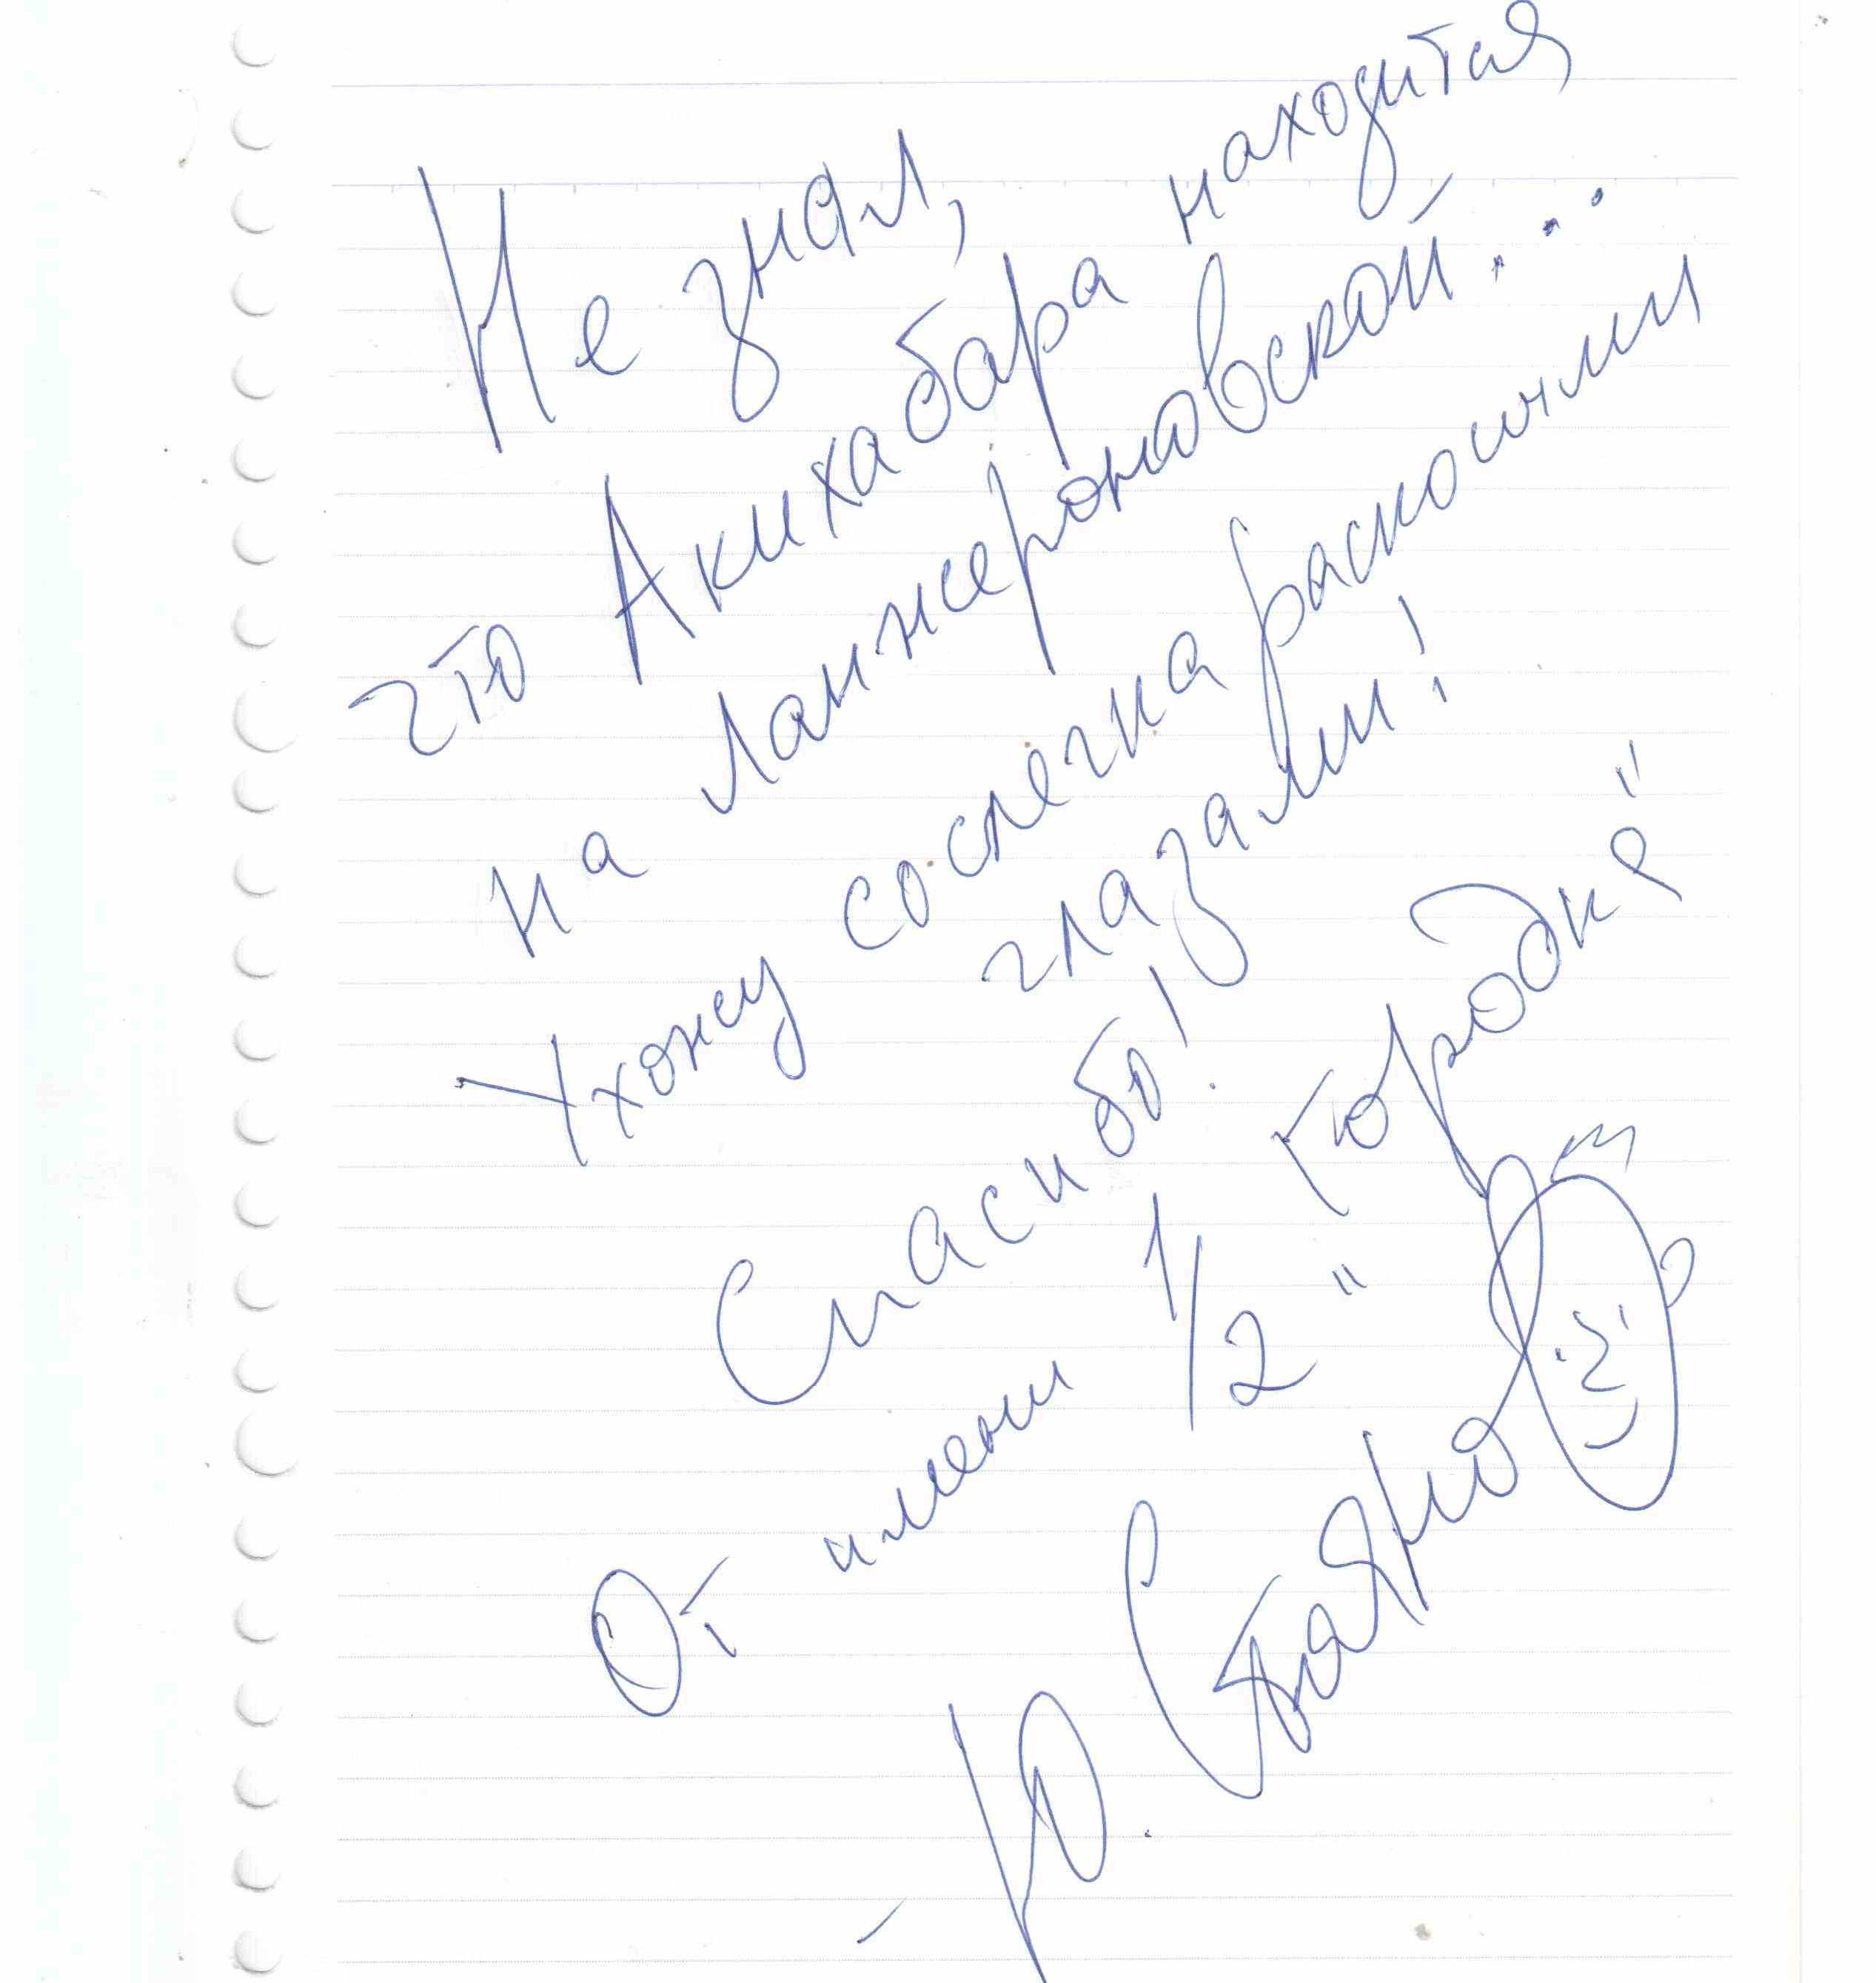 Не знал,
что Акихабара находится
на Ланжероновской...
Ухожу со слегка раскосыми
глазами!
Спасибо!
От имени 1/2 "Городка"
Ю. Стоянов